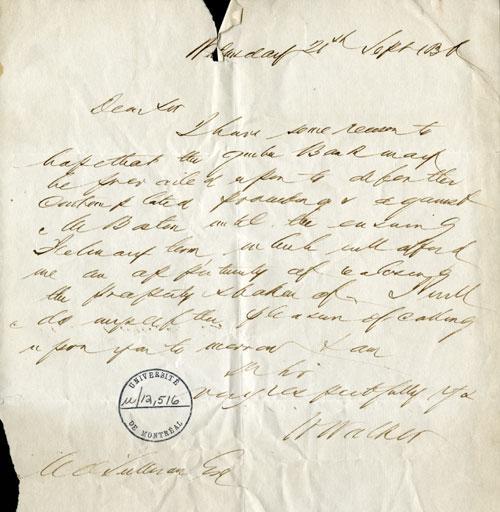 Sept
Dear Sir
I have some reason to
hope that the Bank may
be prevailed upon to defer the
contemplated proceedings against
Mr Boston until the ensuing
February term, which will afford
me an opportunity of
the property spoken of. I will
do myself the pleasure of calling
upon you to morrow I am
very respectfully Yrs
W Walker
Sullivan Esq
UNIVERSITÉ
u/12,516
DE MONTRÉAL